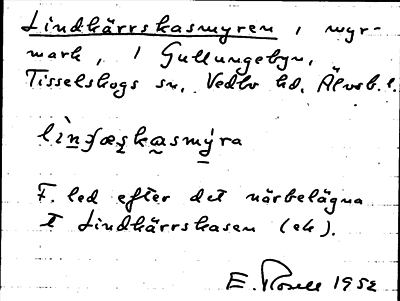 Lindkärrskasmyren, myr-
mark, i Gullungebyn,
Tisselskogs sn, Vedbo hd, Älvsb. l.
F. led efter det närbelägna
t Lindkärrskasen (ek).
E. Rosell 1952